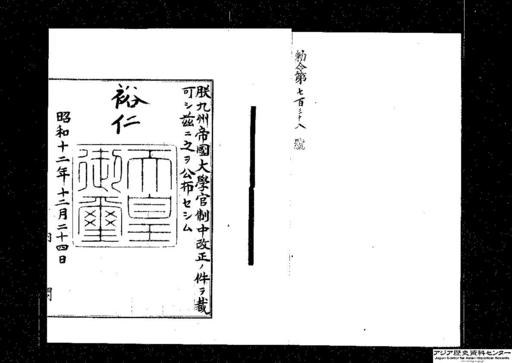 勅令第七百三十八號
朕九州帝國大學官制中改正ノ件ヲ裁
可シ茲ニ之ヲ公布セシム
裕仁
天皇御璽
昭和十二年十二月二十四日
アジア歴史資料センター
Japan Center for Asian Historical Records